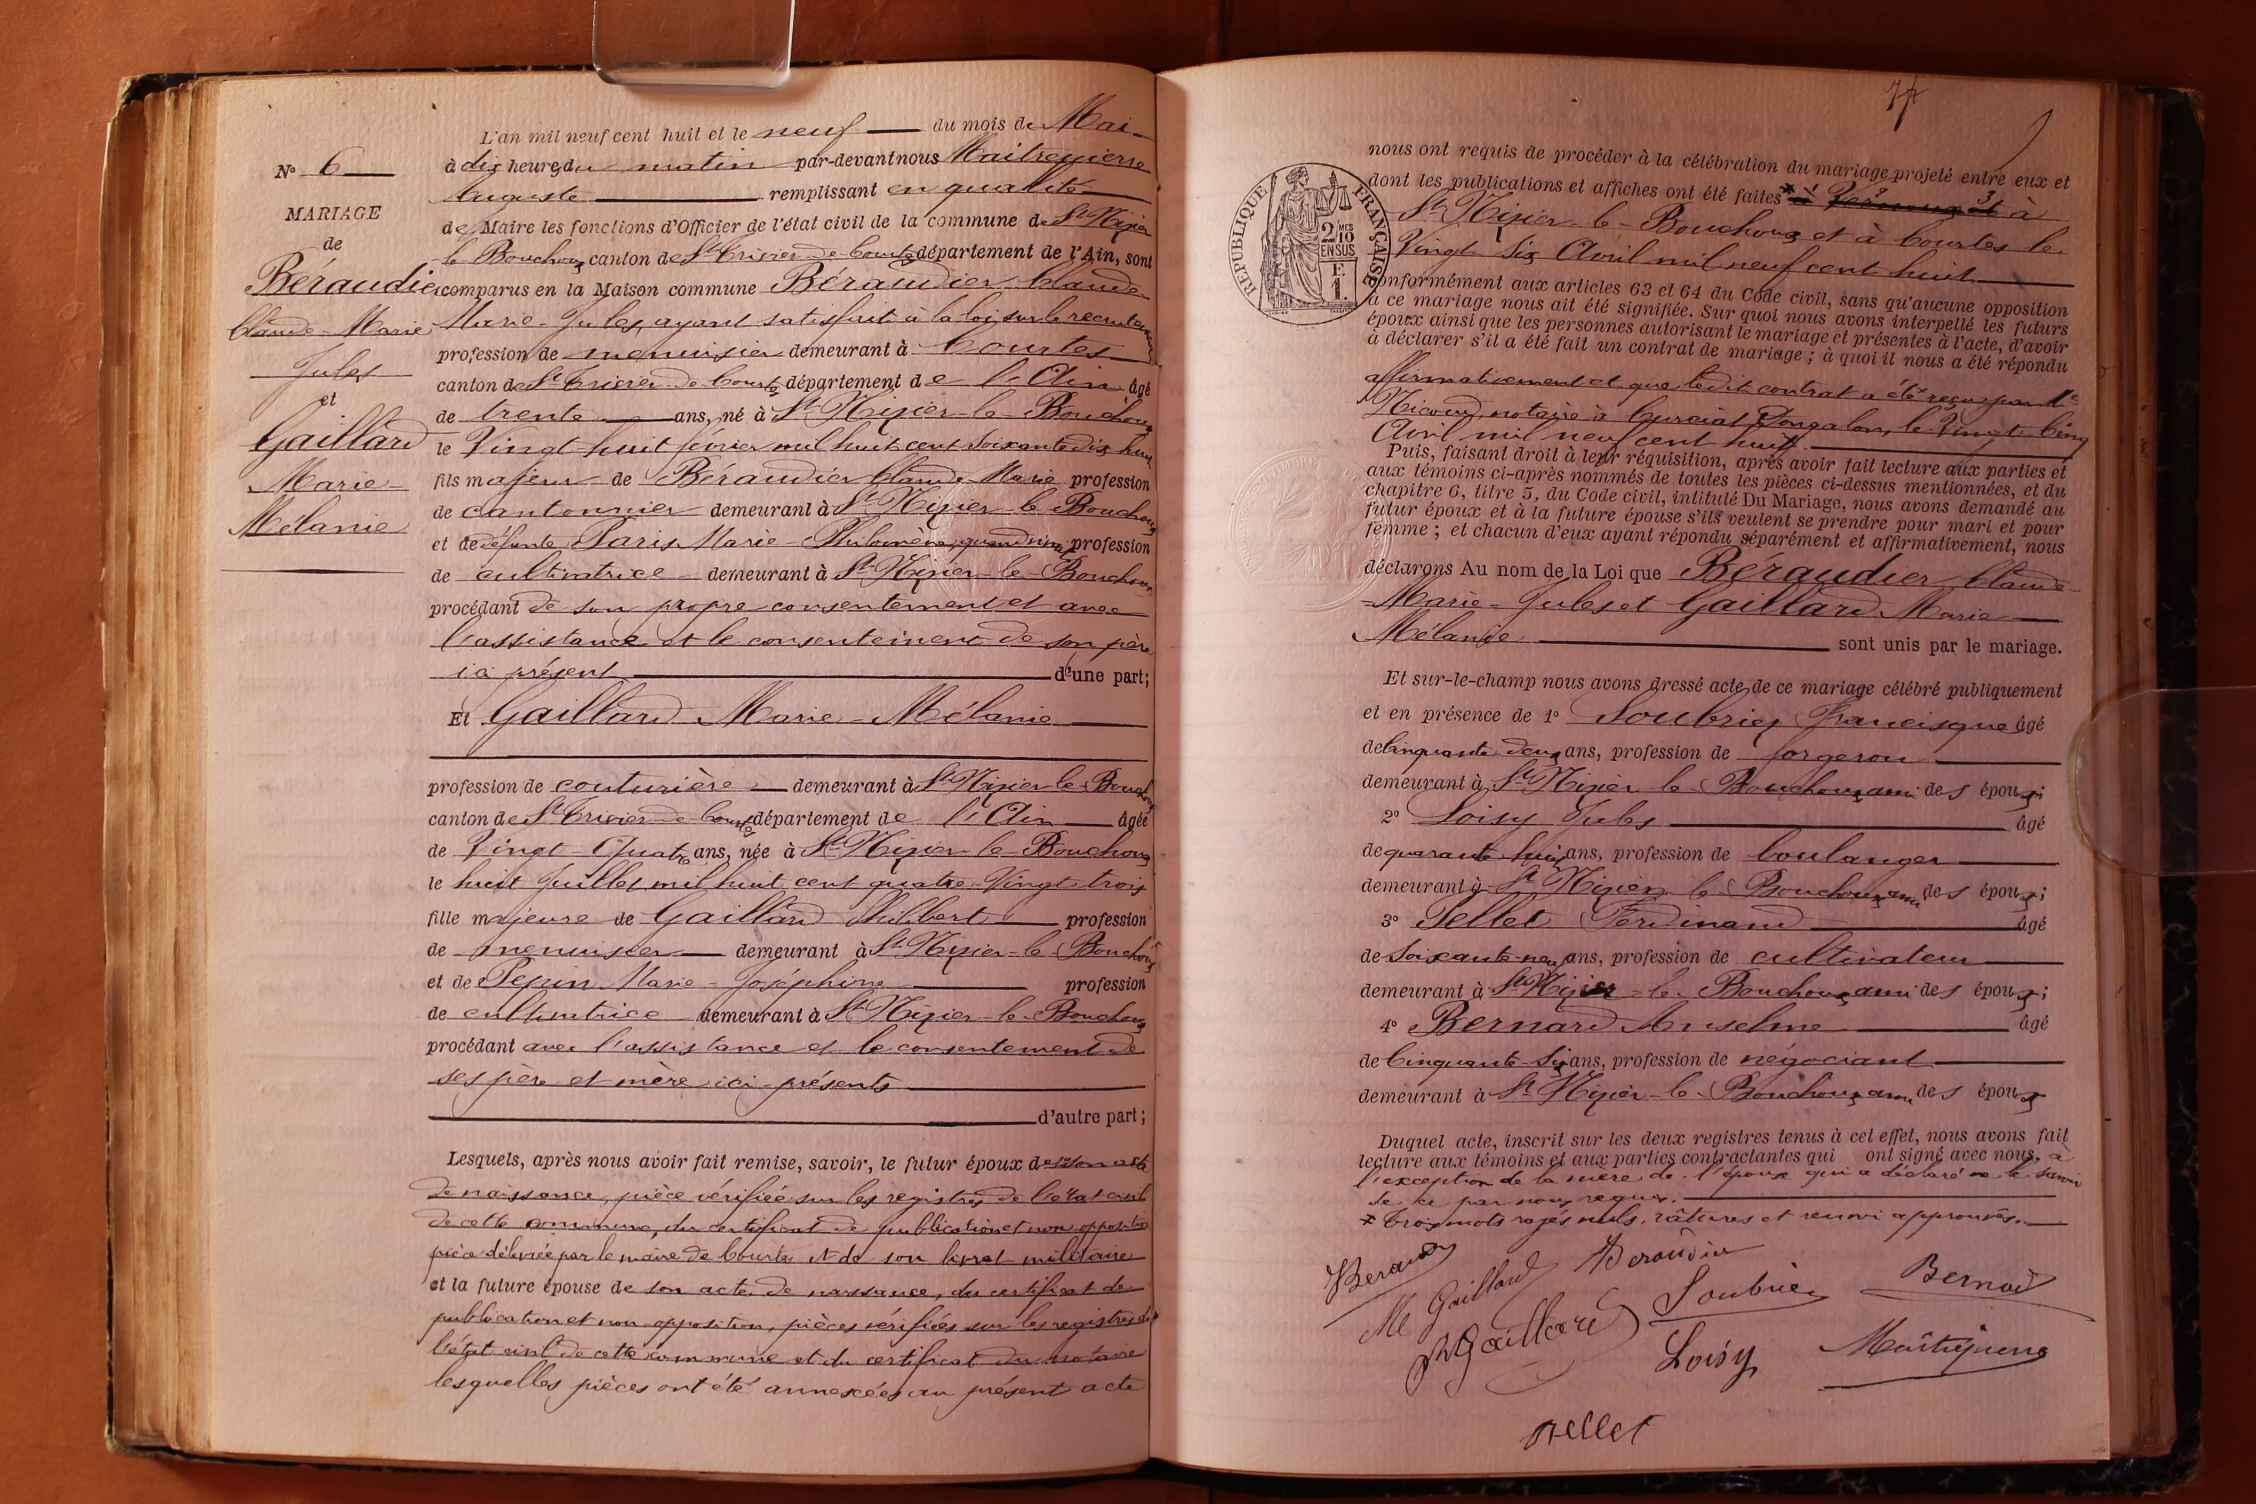 L'an mil neuf cent huit et le neuf du mois de Mai
à dix heures du matin par-devant nous Maitrepierre
Auguste remplissant en qualité
de Maire les fonctions d'Officier de l'état civil de la commune de St Nizier
le Bouchoux canton de St Trivier de Courtes département de l'Ain, sont
comparus en la Maison commune Béraudier Claude
Marie-Jules, ayant satisfait à la loi sur le recrutement
profession de menuisier demeurant à Courtes
canton de St Trivier de Courtes département de l'Ain âgé
de trente ans, né à St Nizier-le-Bouchoux
le Vingt-huit février mil huit cent soixante dix huit
fils majeur de Béraudier Claude-Marie profession
de cantonnier demeurant à St Nizier-le-Bouchoux
et de défunte Paris Marie-Philomène, quand vivait profession
de cultivatrice demeurant à St Nizier-le-Bouchoux
procédant de son propre consentement et avec
l'assistance et le consentement de son père
ici présent d'une part;
Et Gaillard Marie-Mélanie
profession de couturière demeurant à St Nizier-le-Bouchoux
canton de St Trivier-de-Courtes département de l'Ain âgée
de Vingt-Quatre ans, née à St Nizier-le-Bouchoux
le huit Juillet mil huit cent quatre-Vingt-trois
fille majeure de Gaillard Philibert profession
de menuisier demeurant à St Nizier-le-Bouchoux
et de Pepin Marie-Joséphine profession
de cultivatrice demeurant à St Nizier-le-Bouchoux
procédant avec l'assistance et le consentement de
ses père et mère ici présents
d'autre part;
Lesquels, après nous avoir fait remise, savoir, le futur époux de son acte
de naissance, pièce vérifiée sur les registres de l'état civil
de cette commune, du certificat de publication et non opposition
pièce délivrée par le maire de Courtes et de son livret militaire
et la future épouse de son acte de naissance, du certificat de
publication et non opposition, pièces vérifiées sur les registres de
l'état civil de cette commune et du certificat du notaire
lesquelles pièces ont été annexées au présent acte
N° 6
MARIAGE
de
Béraudier
Claude-Marie
Jules
et
Gaillard
Marie-
Mélanie
nous ont requis de procéder à la célébration du mariage projeté entre eux et
dont les publications et affiches ont été faites * à
St Nizier-le-Bouchoux et à Courtes le
Vingt-Six Avril mil neuf cent huit
conformément aux articles 63 et 64 du Code civil, sans qu'aucune opposition
à ce mariage nous ait été signifiée. Sur quoi nous avons interpellé les futurs
époux ainsi que les personnes autorisant le mariage et présentes à l'acte, d'avoir
à déclarer s'il a été fait un contrat de mariage; à quoi il nous a été répondu
affirmativement et que ledit contrat a été reçu par Me
Nicoud, notaire à Curciat Dongalon, le Vingt-Cinq
Avril mil neuf cent huit.
Puis, faisant droit à leur réquisition, après avoir fait lecture aux parties et
aux témoins ci-après nommés de toutes les pièces ci-dessus mentionnées, et du
chapitre 6, titre 5, du Code civil, intitulé Du Mariage, nous avons demandé au
futur époux et à la future épouse s'ils veulent se prendre pour mari et pour
femme; et chacun d'eux ayant répondu séparément et affirmativement, nous
déclarons Au nom de la Loi que Béraudier Claude-
Marie-Jules et Gaillard Marie
Mélanie sont unis par le mariage.
Et sur-le-champ nous avons dressé acte de ce mariage célébré publiquement
et en présence de 1° Soubrier Francisque âgé
de Cinquante deux ans, profession de forgeron
demeurant à St Nizier le Bouchoux ami des époux;
2° Loisy Jules âgé
de quarante huit ans, profession de boulanger
demeurant à St Nizier le Bouchoux ami des époux;
3° Pellet Ferdinand âgé
de Soixante-neuf ans, profession de cultivateur
demeurant à St Nizier-le-Bouchoux ami des époux;
4° Bernard Anselme âgé
de Cinquante-Six ans, profession de négociant
demeurant à St Nizier-le-Bouchoux ami des époux
Duquel acte, inscrit sur les deux registres tenus à cet effet, nous avons fait
lecture aux témoins et aux parties contractantes qui ont signé avec nous, à
l'exception de la mère de l'épouse qui a déclaré ne le savoir
de ce par nous requis.
* Trois mots rayés nuls, râtures et renvoi approuvés.
M Gaillard
Beraudier
Soubrier
Bernard
Gaillard
Loisy
Maîtrepierre
Pellet
RÉPUBLIQUE FRANÇAISE
2 MES
/10
EN SUS
F.
1.